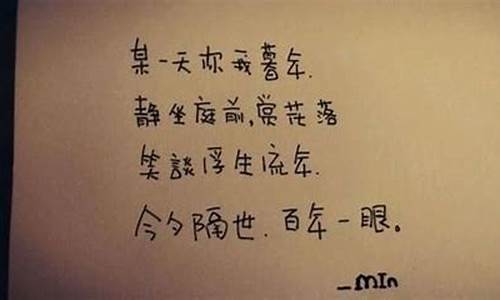 某一天你我暮年.
静坐庭前,赏花落
笑談浮生流年.
今夕隔世.百年一眼。
_MIn